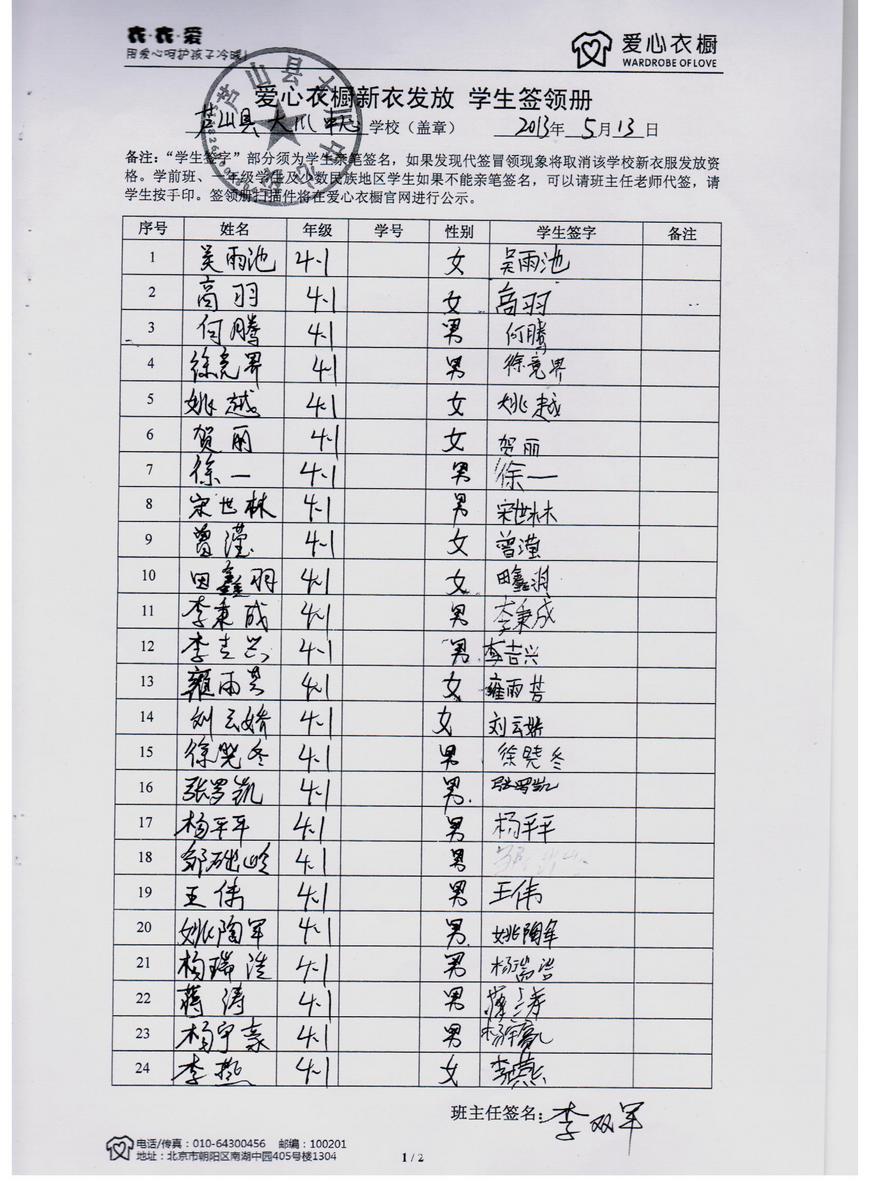 衣·衣·爱
用爱心呵护孩子冷暖!
爱心衣橱
WARDROBE OF LOVE
爱心衣橱新衣发放 学生签领册
芦山县大川中心学校（盖章） 2013年 5月13日
备注：“学生签字”部分须为学生亲笔签名，如果发现代签冒领现象将取消该学校新衣服发放资
格。学前班、一年级学生及少数民族地区学生如果不能亲笔签名，可以请班主任老师代签，请
学生按手印。签领册扫描件将在爱心衣橱官网进行公示。
序号 姓名 年级 学号 性别 学生签字 备注
1 吴雨池 4-1 女 吴雨池
2 高羽 4-1 女 高羽
3 何腾 4-1 男 何腾
4 徐竞界 4-1 男 徐竞界
5 姚越 4-1 女 姚越
6 贺丽 4-1 女 贺丽
7 徐一 4-1 男 徐一
8 宋世林 4-1 男 宋世林
9 曾滢 4-1 女 曾滢
10 田鑫羽 4-1 女 田鑫
11 李秉成 4-1 男 李秉成
12 李吉兴 4-1 男 李吉兴
13 雍雨芳 4-1 女 雍雨芳
14 刘云娇 4-1 女 刘云娇
15 徐晓冬 4-1 男 徐晓冬
16 张罗凯 4-1 男 张罗凯
17 杨平平 4-1 男 杨平平
18 邹础岭 4-1 男
19 王伟 4-1 男 王伟
20 姚陶军 4-1 男 姚陶军
21 杨瑞浩 4-1 男 杨瑞浩
22 蒋涛 4-1 男 蒋涛
23 杨宇豪 4-1 男 杨宇豪
24 李燕 4-1 女 李燕
班主任签名：李双军
电话/传真：010-64300456 邮编：100201
地址：北京市朝阳区南湖中园405号楼1304
1 / 2